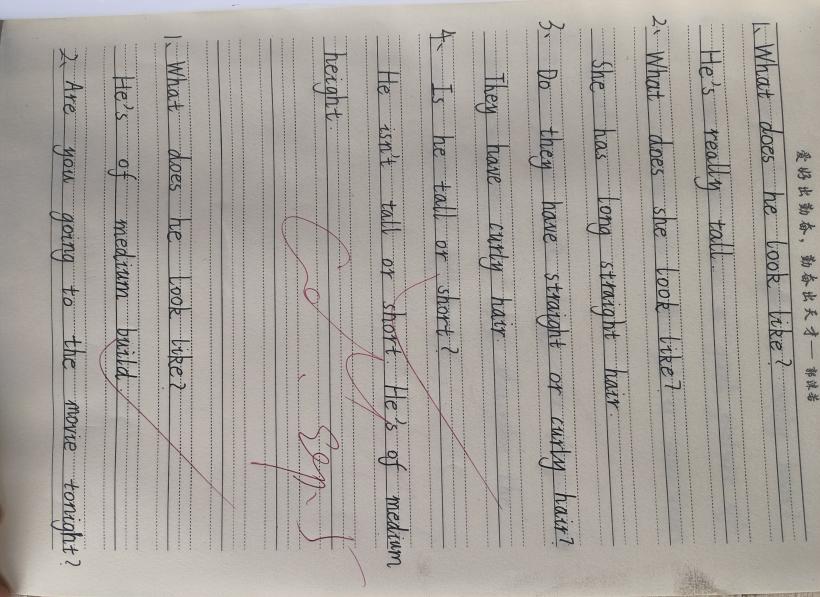 爱好出勤奋，勤奋出天才——郭沫若
1、What does he look like?
He's really tall.
2、What does she look like?
She has long straight hair.
3、Do they have straight or curly hair?
They have curly hair
4、Is he tall or short?
He isn't tall or short. He's of medium
height.
Sep.
1、What does he look like?
He's of medium build
2、Are you going to the movie tonight?